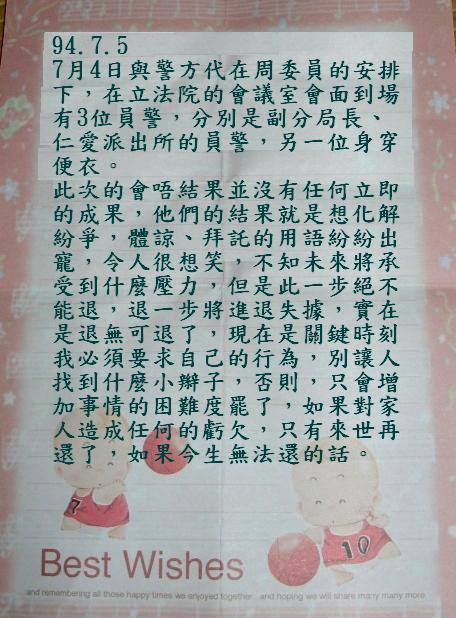 94.7.5
7月4日與警方代在周委員的安排
下，在立法院的會議室會面到場
有3位員警，分別是副分局長、
仁愛派出所的員警，另一位身穿
便衣。
此次的會唔結果並沒有任何立即
的成果，他們的結果就是想化解
紛爭，體諒、拜託的用語紛紛出
寵，令人很想笑，不知未來將承
受到什麼壓力，但是此一步絕不
能退，退一步將進退失據，實在
是退無可退了，現在是關鍵時刻
我必須要求自己的行為，別讓人
找到什麼小辮子，否則，只會增
加事情的困難度罷了，如果對家
人造成任何的虧欠，只有來世再
還了，如果今生無法還的話。
7
10
Best Wishes
and remembering all those happy times we enjoyed together and hoping we will share many many more